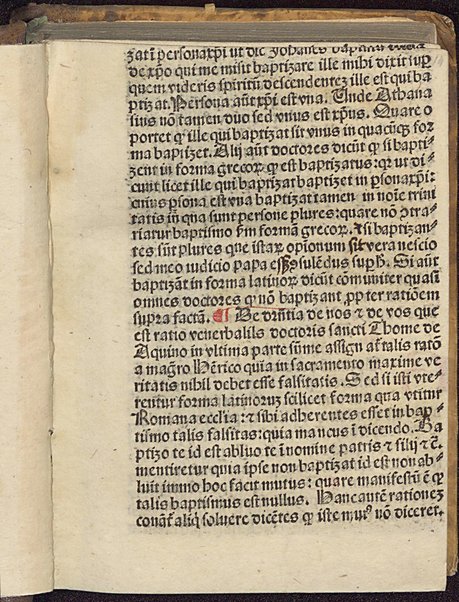 zat ī persona xp̄i ut dic̄ Johānes baptista
de xp̄o qui me misit baptizare ille mihi dixit sup̄
quem videris spiritū descendentez ille est qui ba
ptizat. Persona aūt xp̄i est vna. Unde Athana
sius nō tamen duo sed vnus est xp̄us. Quare o
portet ꝙ ille qui baptizat sit vnus in quacūqꝫ for
ma baptizet. Alij aūt doctores dicūt ꝙ si bapti-
zent in forma grecoꝝ ꝙ est baptizatus: qꝛ ut di-
cunt licet ille qui baptizat baptizet in ꝑsona xp̄i:
cuius ꝑsona est vna baptizat tamen in noīe trini
tatis in qua sunt persone plures: quare nō ɔtra-
riatur baptismo ẜm formā grecoꝝ. ⁊ si baptizan-
tes sūt plures que istaꝝ opīonum sit vera nescio
sed meo iudicio papa eēt ɔsulēdus suꝑ h̄. Si aūt
baptizāt in forma latinoꝝ dicūt cōmuniter quasi
omnes doctores ꝙ nō baptizant ꝓpter ratiōem
supra factā. ¶ De dr̄ntia de nos ⁊ de vos que
est ratio venerbalils doctoris sancti Thome de
Aquino in vltima parte sūme assignat᷑ talis ratō
a magr̄o Hērico quia in sacramento maxime ve
ritatis nihil debet esse falsitatis. Sed si isti vte-
rentur forma latinoruz scilicet forma qua vtitur
Romana ecclīa: ⁊ sibi adherentes esset in bap-
tismo talis falsitas: quia mancus ī dicendo. Ba
ptizo te id est abluo te ī nomine patris ⁊ filij ⁊ c̄.
mentiretur quia ipse non baptizat id est non ab-
luit immo hoc facit mutus: quare manifestū ē ꝙ
talis baptismus est nullus. Hanc autē rationez
conāt᷑ aliq̄ soluere dicētes ꝙ iste mutꝰ nō diceret